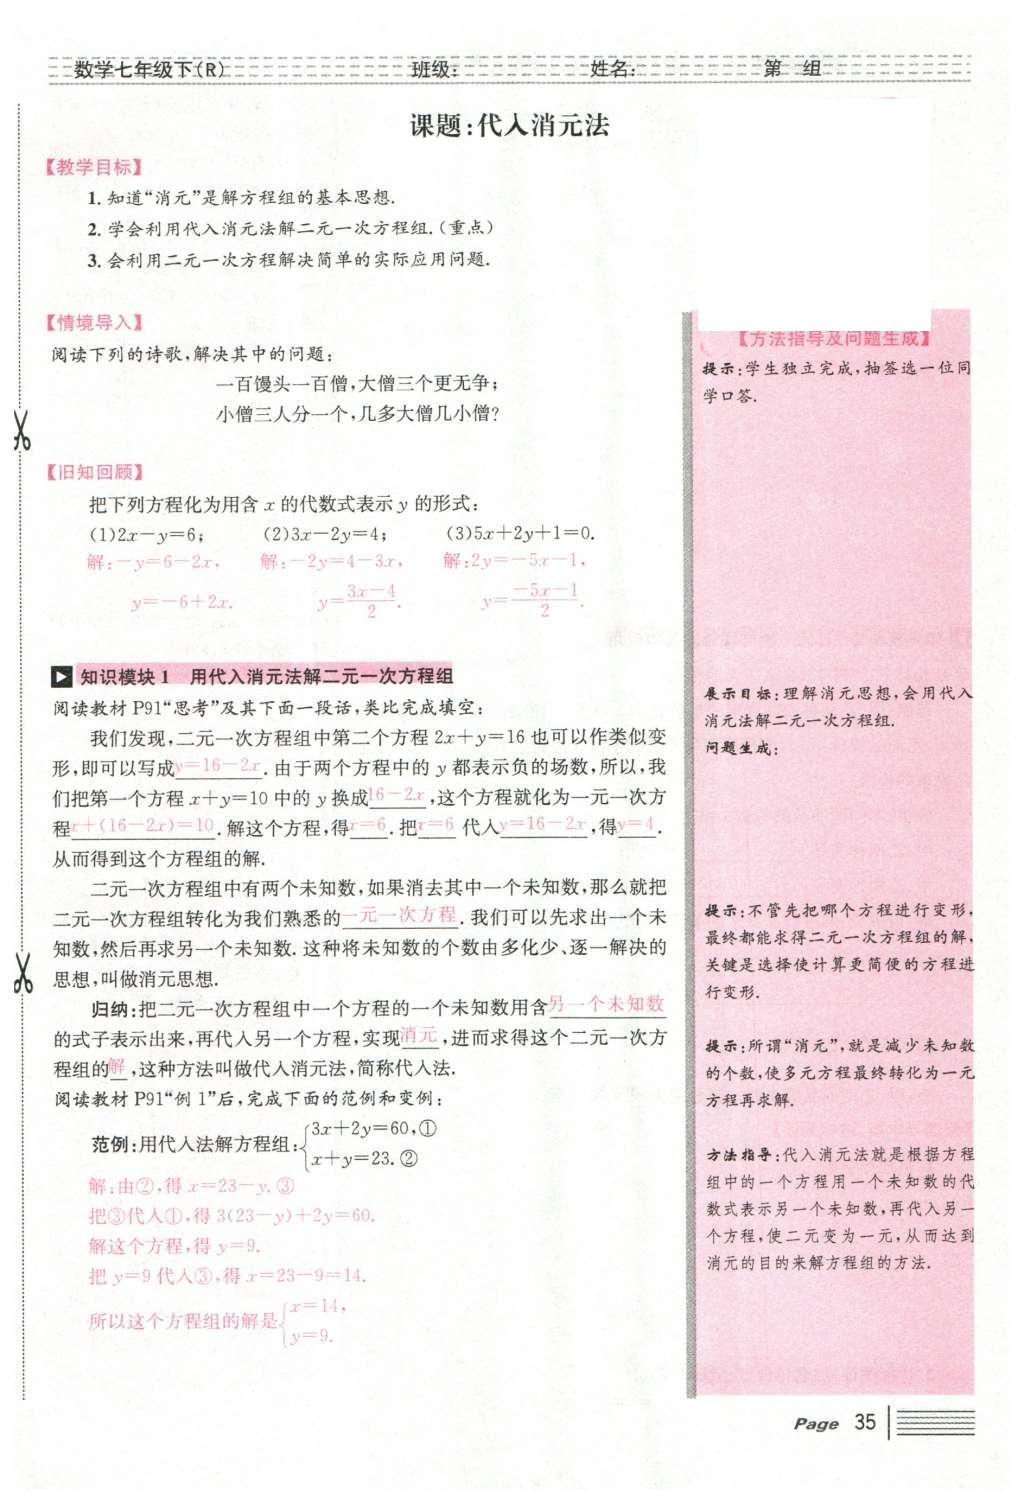 数学七年级下(R) 班级: 姓名: 第 组
课题:代入消元法
【教学目标】
1. 知道“消元”是解方程组的基本思想.
2. 学会利用代入消元法解二元一次方程组.(重点)
3. 会利用二元一次方程解决简单的实际应用问题.
【情境导入】
阅读下列的诗歌,解决其中的问题:
一百馒头一百僧,大僧三个更无争;
小僧三人分一个,几多大僧几小僧?
【旧知回顾】
把下列方程化为用含 x 的代数式表示 y 的形式:
(1)2x－y＝6; (2)3x－2y＝4; (3)5x＋2y＋1＝0.
解:－y＝6－2x, 解:－2y＝4－3x, 解:2y＝－5x－1,
y＝－6＋2x. y＝(3x－4)/2. y＝(－5x－1)/2.
知识模块 1 用代入消元法解二元一次方程组
阅读教材 P91“思考”及其下面一段话,类比完成填空:
我们发现,二元一次方程组中第二个方程 2x＋y＝16 也可以作类似变
形,即可以写成y＝16－2x. 由于两个方程中的 y 都表示负的场数,所以,我
们把第一个方程 x＋y＝10 中的 y 换成16－2x,这个方程就化为一元一次方
程x＋(16－2x)＝10. 解这个方程,得x＝6. 把x＝6 代入y＝16－2x,得y＝4.
从而得到这个方程组的解.
二元一次方程组中有两个未知数,如果消去其中一个未知数,那么就把
二元一次方程组转化为我们熟悉的一元一次方程. 我们可以先求出一个未
知数,然后再求另一个未知数. 这种将未知数的个数由多化少、逐一解决的
思想,叫做消元思想.
归纳:把二元一次方程组中一个方程的一个未知数用含另一个未知数
的式子表示出来,再代入另一个方程,实现消元,进而求得这个二元一次方
程组的解,这种方法叫做代入消元法,简称代入法.
阅读教材 P91“例 1”后,完成下面的范例和变例:
范例:用代入法解方程组:{3x＋2y＝60,①
x＋y＝23. ②
解:由②,得 x＝23－y. ③
把③代入①,得 3(23－y)＋2y＝60.
解这个方程,得 y＝9.
把 y＝9 代入③,得 x＝23－9＝14.
所以这个方程组的解是{x＝14,
y＝9.
【方法指导及问题生成】
提示:学生独立完成,抽签选一位同
学口答.
展示目标:理解消元思想,会用代入
消元法解二元一次方程组.
问题生成:
提示:不管先把哪个方程进行变形,
最终都能求得二元一次方程组的解,
关键是选择使计算更简便的方程进
行变形.
提示:所谓“消元”,就是减少未知数
的个数,使多元方程最终转化为一元
方程再求解.
方法指导:代入消元法就是根据方程
组中的一个方程用一个未知数的代
数式表示另一个未知数,再代入另一
个方程,使二元变为一元,从而达到
消元的目的来解方程组的方法.
Page 35